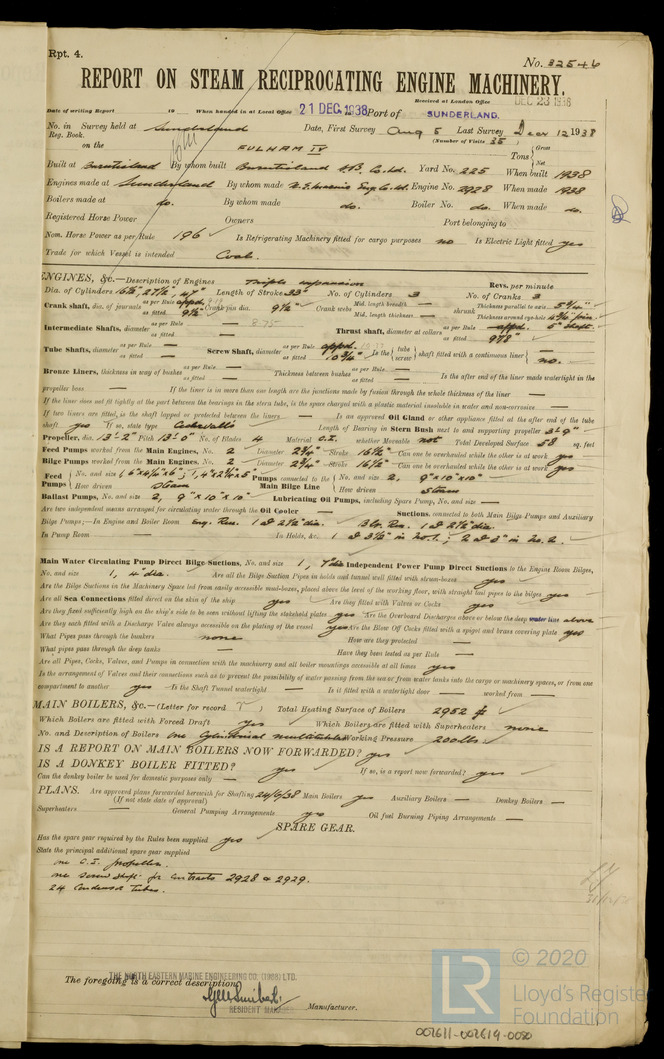 Rpt. 4.
No. 32546
REPORT ON STEAM RECIPROCATING ENGINE MACHINERY.
Received at London Office DEC 23 1938
Date of writing Report 19 When handed in at Local Office 21 DEC. 1938 Port of SUNDERLAND.
No. in Survey held at Sunderland Date, First Survey Aug 5 Last Survey Dec 12 1938
Reg. Book. (Number of Visits 35)
on the FULHAM IV Tons Gross Net
Built at Burntisland By whom built Burntisland S.B. Co. Ltd. Yard No. 225 When built 1938
Engines made at Sunderland By whom made N.E. Marine Eng. Co. Ltd. Engine No. 2928 When made 1938
Boilers made at do. By whom made do. Boiler No. do. When made do.
Registered Horse Power Owners Port belonging to
Nom. Horse Power as per Rule 196 Is Refrigerating Machinery fitted for cargo purposes no Is Electric Light fitted yes
Trade for which Vessel is intended Coal.
ENGINES, &c.—Description of Engines Triple expansion Revs. per minute
Dia. of Cylinders 16½", 27½", 47" Length of Stroke 33" No. of Cylinders 3 No. of Cranks 3
Crank shaft, dia. of journals as per Rule appd. as fitted 9½" Crank pin dia. 9½" Crank webs Mid. length breadth — Mid. length thickness — shrunk Thickness parallel to axis Thickness around eye-hole
Intermediate Shafts, diameter as per Rule — as fitted — Thrust shaft, diameter at collars as per Rule appd. as fitted 9⅞"
Tube Shafts, diameter as per Rule — as fitted — Screw Shaft, diameter as per Rule appd. as fitted 10¾" Is the tube screw shaft fitted with a continuous liner no.
Bronze Liners, thickness in way of bushes as per Rule — as fitted — Thickness between bushes as per Rule — as fitted — Is the after end of the liner made watertight in the
propeller boss — If the liner is in more than one length are the junctions made by fusion through the whole thickness of the liner —
If the liner does not fit tightly at the part between the bearings in the stern tube, is the space charged with a plastic material insoluble in water and non-corrosive —
If two liners are fitted, is the shaft lapped or protected between the liners — Is an approved Oil Gland or other appliance fitted at the after end of the tube
shaft yes If so, state type Cedervalls Length of Bearing in Stern Bush next to and supporting propeller 3'-9"
Propeller, dia. 13'-2" Pitch 13'-0" No. of Blades 4 Material C.I. whether Moveable not Total Developed Surface 58 sq. feet
Feed Pumps worked from the Main Engines, No. 2 Diameter 2¾" Stroke 16½" Can one be overhauled while the other is at work yes
Bilge Pumps worked from the Main Engines, No. 2 Diameter 2¾" Stroke 16½" Can one be overhauled while the other is at work yes
Feed Pumps No. and size How driven steam Pumps connected to the Main Bilge Line No. and size 2, 9"x10"x10" How driven steam
Ballast Pumps, No. and size 2, 9"x10"x10" Lubricating Oil Pumps, including Spare Pump, No. and size —
Are two independent means arranged for circulating water through the Oil Cooler — Suctions, connected to both Main Bilge Pumps and Auxiliary
Bilge Pumps;—In Engine and Boiler Room Eng. Rm. 1 @ 2½" dia. Blr. Rm. 1 @ 2½" dia.
In Pump Room — In Holds, &c. 1 @ 3½" in No. 1; 2 @ 3" in No. 2.
Main Water Circulating Pump Direct Bilge Suctions, No. and size 1, 7" dia Independent Power Pump Direct Suctions to the Engine Room Bilges,
No. and size 1, 4" dia. Are all the Bilge Suction Pipes in holds and tunnel well fitted with strum-boxes yes
Are the Bilge Suctions in the Machinery Space led from easily accessible mud-boxes, placed above the level of the working floor, with straight tail pipes to the bilges yes
Are all Sea Connections fitted direct on the skin of the ship yes Are they fitted with Valves or Cocks yes
Are they fixed sufficiently high on the ship's side to be seen without lifting the stokehold plates yes Are the Overboard Discharges above or below the deep water line above
Are they each fitted with a Discharge Valve always accessible on the plating of the vessel yes Are the Blow Off Cocks fitted with a spigot and brass covering plate yes
What Pipes pass through the bunkers none How are they protected —
What pipes pass through the deep tanks — Have they been tested as per Rule —
Are all Pipes, Cocks, Valves, and Pumps in connection with the machinery and all boiler mountings accessible at all times yes
Is the arrangement of Valves and their connections such as to prevent the possibility of water passing from the sea or from water tanks into the cargo or machinery spaces, or from one
compartment to another yes Is the Shaft Tunnel watertight — Is it fitted with a watertight door — worked from —
MAIN BOILERS, &c.—(Letter for record ) Total Heating Surface of Boilers 2952
Which Boilers are fitted with Forced Draft yes Which Boilers are fitted with Superheaters none
No. and Description of Boilers One Cylindrical multitubular Working Pressure 200 lbs.
IS A REPORT ON MAIN BOILERS NOW FORWARDED? yes
IS A DONKEY BOILER FITTED? yes If so, is a report now forwarded? yes
Can the donkey boiler be used for domestic purposes only —
PLANS. Are approved plans forwarded herewith for Shafting 24/6/38 Main Boilers yes Auxiliary Boilers — Donkey Boilers —
(If not state date of approval)
Superheaters — General Pumping Arrangements yes Oil fuel Burning Piping Arrangements —
SPARE GEAR.
Has the spare gear required by the Rules been supplied yes
State the principal additional spare gear supplied
one C.I. propeller.
one screw shaft for contracts 2928 & 2929.
24 Condenser Tubes.
THE NORTH EASTERN MARINE ENGINEERING CO. (1938) LTD.
The foregoing is a correct description,
RESIDENT MANAGER Manufacturer.
© 2020
LR Lloyd's Register
Foundation
002611-002619-0080